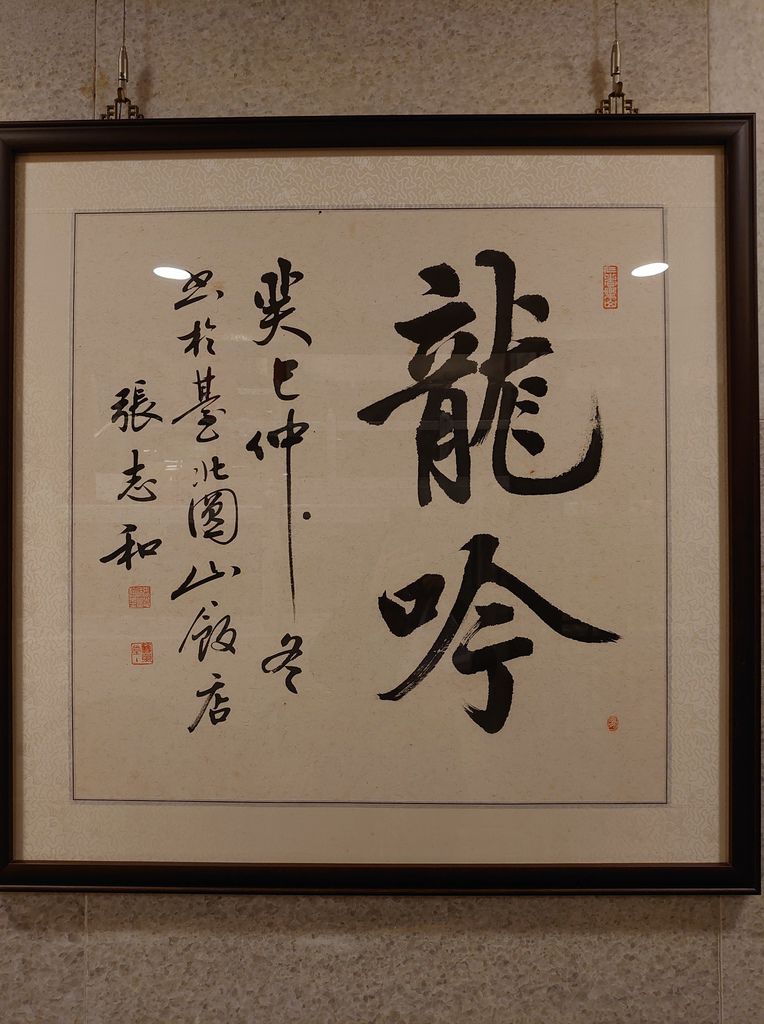 龍吟
癸巳仲冬
书於臺北圓山飯店
張志和